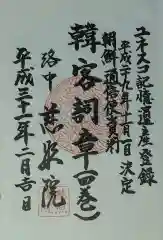 ユネスコ記憶遺産登録
平成二十九年十月三十一日決定
朝鮮通信使資料
韓客詞章(四巻)
洛中 慈照院
平成三十一年二月吉日